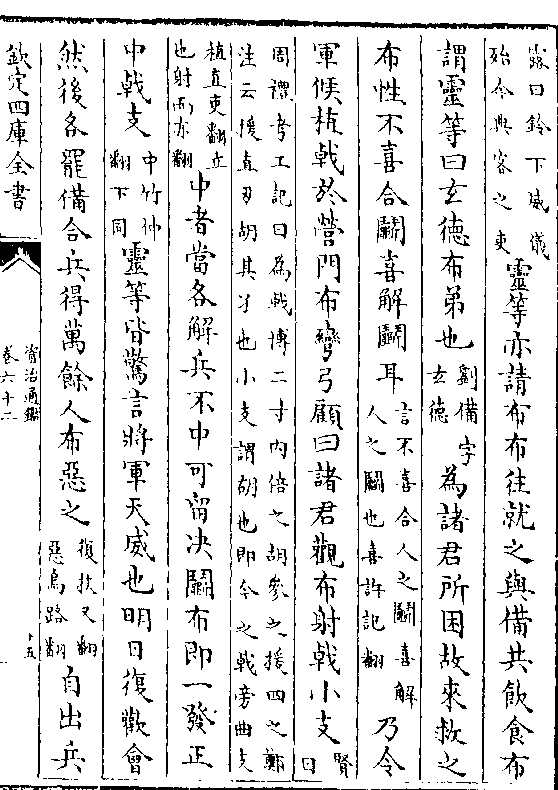 露曰鈴下威儀
殆今典客之吏
靈等亦請布布往就之與備共飲食布
謂靈等曰玄德布弟也
劉備字
玄德
為諸君所困故來救之
布性不喜合鬭喜解鬭耳
言不喜合人之鬭喜解
人之鬭也喜許記翻
乃令
軍候植戟於營門布彎弓顧曰諸君觀布射戟小支
賢
曰
周禮考工記曰為戟博二寸內倍之胡參之援四之鄭
注云援直刃胡其孑也小支謂胡也即今之戟旁曲支
植直吏翻立
也射而亦翻
中者當各解兵不中可留决鬭布即一發正
中戟支
中竹仲
翻下同
靈等皆驚言將軍天威也明日復歡會
然後各罷備合兵得萬餘人布惡之
復扶又翻
惡烏路翻
自出兵
欽定四庫全書
資治通鑑
卷六十二
十五